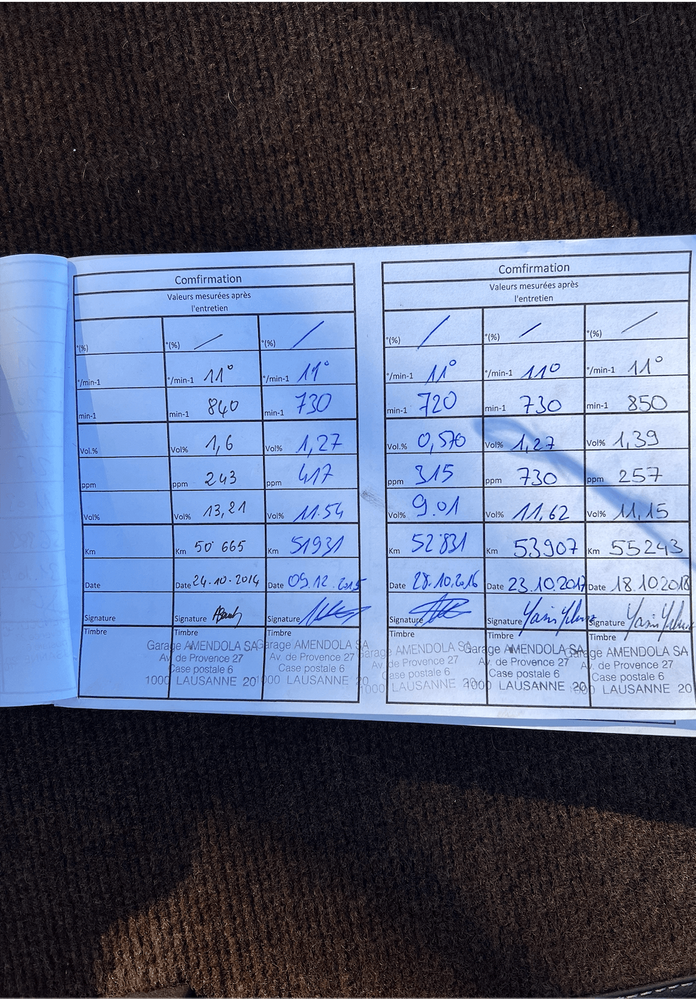 Comfirmation
Valeurs mesurées après
l'entretien
°(%) °(%) °(%)
°/min-1 °/min-1 11° °/min-1 11°
min-1 min-1 840 min-1 730
Vol.% Vol% 1,6 Vol% 1,27
ppm ppm 243 ppm 417
Vol% Vol% 13,21 Vol% 11.54
Km Km 50 665 Km 51931
Date Date 24.10.2014 Date 09.12.2015
Signature Signature Signature
Timbre Timbre Timbre
Garage AMENDOLA SA Garage AMENDOLA SA
Av. de Provence 27 Av. de Provence 27
Case postale 6 Case postale 6
1000 LAUSANNE 20 1000 LAUSANNE 20
Comfirmation
Valeurs mesurées après
l'entretien
°(%) °(%) °(%)
°/min-1 11° °/min-1 11° °/min-1 11°
min-1 720 min-1 730 min-1 850
Vol.% 0,570 Vol% 1,27 Vol% 1,39
ppm 315 ppm 730 ppm 257
Vol% 9.01 Vol% 11,62 Vol% 11,15
Km 52'831 Km 53907 Km 55243
Date 28.10.2016 Date 23.10.2017 Date 18.10.2018
Signature Signature Signature
Timbre Timbre Timbre
Garage AMENDOLA SA Garage AMENDOLA SA Garage AMENDOLA SA
Av. de Provence 27 Av. de Provence 27 Av. de Provence 27
Case postale 6 Case postale 6 Case postale 6
1000 LAUSANNE 20 1000 LAUSANNE 20 1000 LAUSANNE 20